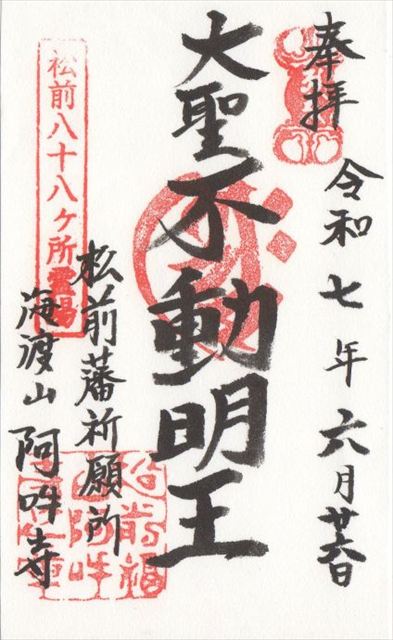 奉拝
令和七年六月廿六日
大聖不動明王
松前八十八ヶ所霊場
松前藩祈願所
海渡山阿吽寺